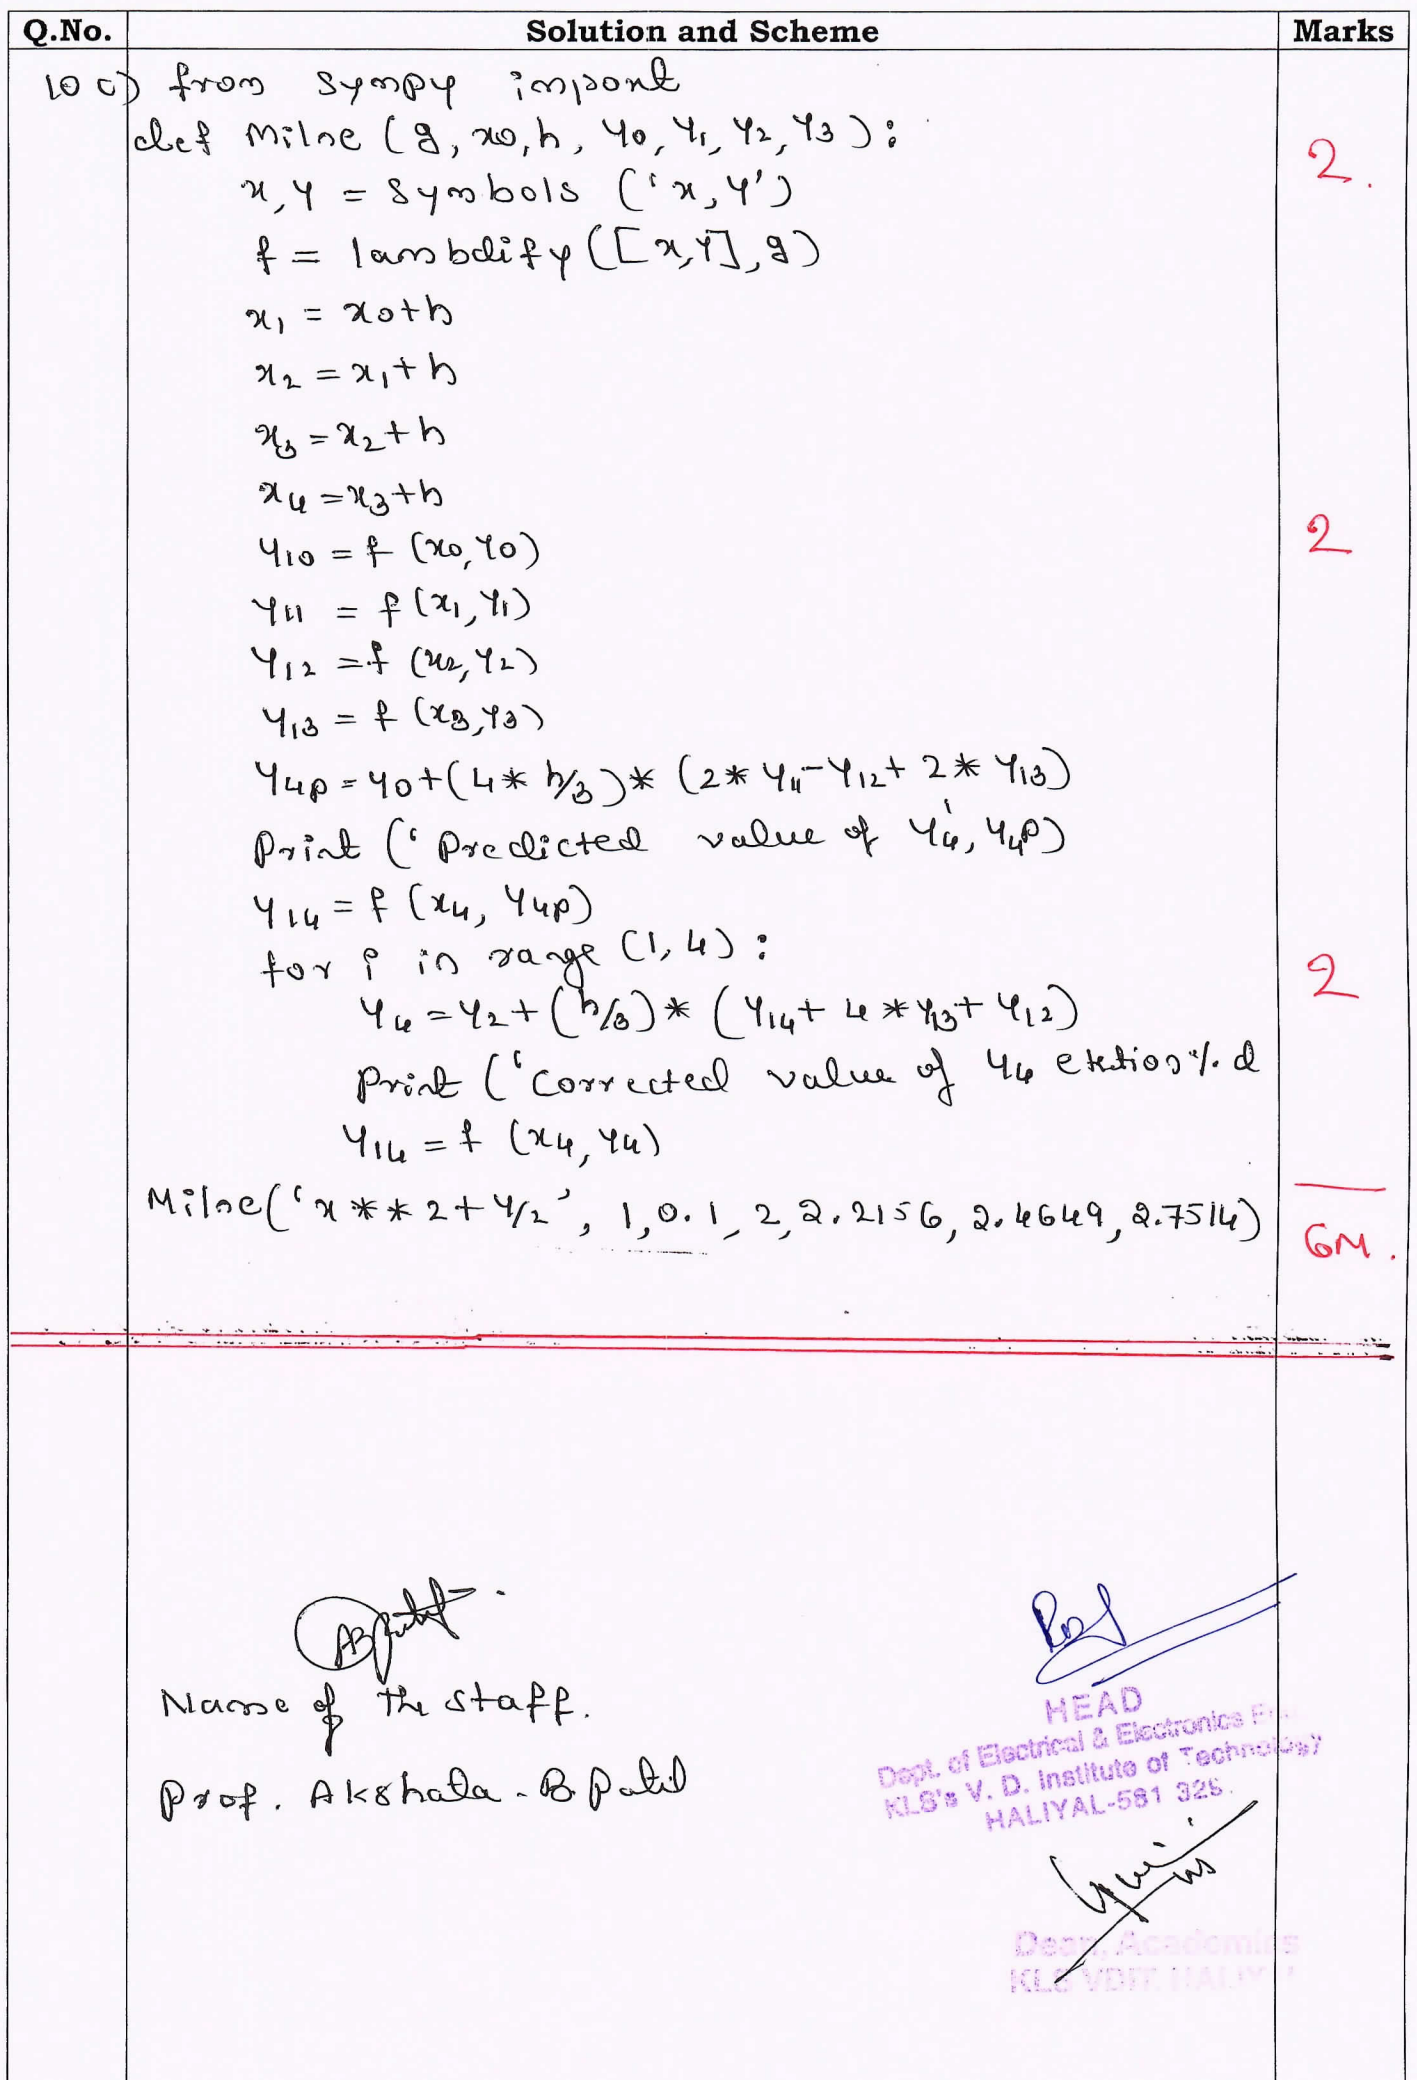 Q.No. Solution and Scheme Marks
10 c) from sympy import
def Milne (g, x0, h, y0, y1, y2, y3): 2.
x, y = symbols ('x, y')
f = lambdify ([x, y], g)
x1 = x0+h
x2 = x1+h
x3 = x2+h
x4 = x3+h
y10 = f (x0, y0) 2
y11 = f (x1, y1)
y12 = f (x2, y2)
y13 = f (x3, y3)
y4p = y0+(4* h/3)* (2* y11-y12+ 2* y13)
Print ('Predicted value of y4', y4p)
y14 = f (x4, y4p)
for i in range (1, 4): 2
y4 = y2+(h/3)* (y14+ 4 * y13+ y12)
Print ('corrected value of y4 % d
y14 = f (x4, y4)
Milne('x ** 2+ y/2', 1, 0.1, 2, 2.2156, 2.4649, 2.7514)
6M.
Name of the staff.
Prof. Akshata. B. Patil
HEAD
Dept. of Electrical & Electronics
KLS's V. D. Institute of Technology
HALIYAL-581 325.
Dean, Academics
KLS VDIT